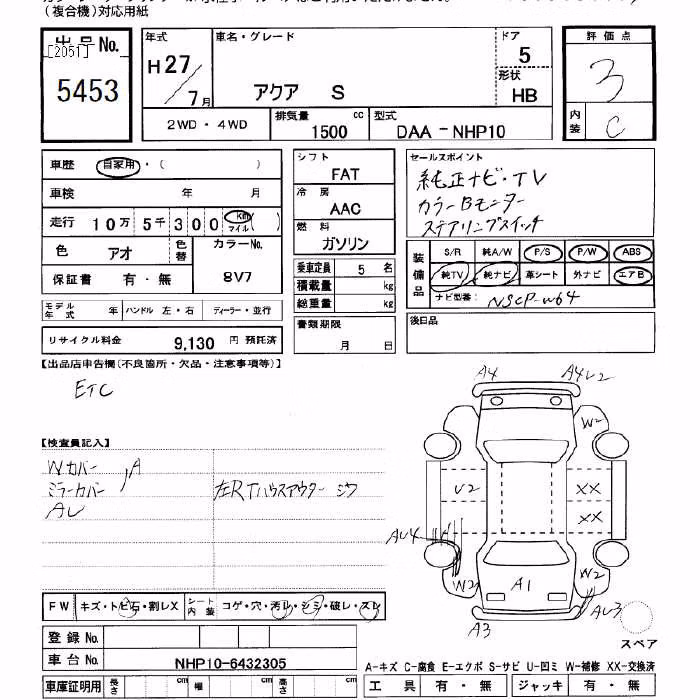 (複合機)対応用紙
出品 No.
[2051]
5453
年式
H27/7月
車名・グレード
アクア S
ドア
5
形状
HB
評価点
3
内装
C
2WD・4WD
排気量 cc
1500
型式
DAA-NHP10
車歴 自家用・( )
車検 年 月
走行 10万5千300 Km マイル( )
色 アオ 色替 カラーNo. 8V7
保証書 有・無
モデル年式 年 ハンドル 左・右 ディーラー・並行
リサイクル料金 9,130 円 預託済
シフト
FAT
冷房
AAC
燃料
ガソリン
乗車定員 5 名
積載量 kg
総重量 kg
書類期限
月 日
セールスポイント
純正ナビ・TV
カラーBモニター
ステアリングスイッチ
装備品
S/R 純A/W P/S P/W ABS
純TV 純ナビ 革シート 外ナビ エアB
ナビ型番: NSCP-W64
後日品
【出品店申告欄(不良箇所・欠品・注意事項等)】
ETC
【検査員記入】
Wカバー
ミラーカバー , A
左RTハウスアウター シワ
FW キズ・トビ石・割レX シート内装 コゲ・穴・汚レ・シミ・破レ・スレ
登録 No.
車台 No. NHP10-6432305
車庫証明用 長さ cm 幅 cm 高さ cm
A4 A4U2
W2
U2 XX
XX
AU4
W2 A1 W2
A3 AU3
スペア
A-キズ C-腐食 E-エクボ S-サビ U-凹ミ W-補修 XX-交換済
工具 有・無 ジャッキ 有・無